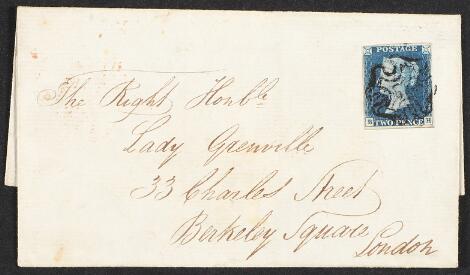 POSTAGE
TWO PENCE
H
The Right Honble
Lady Grenville
33 Charles Street
Berkeley Square
London